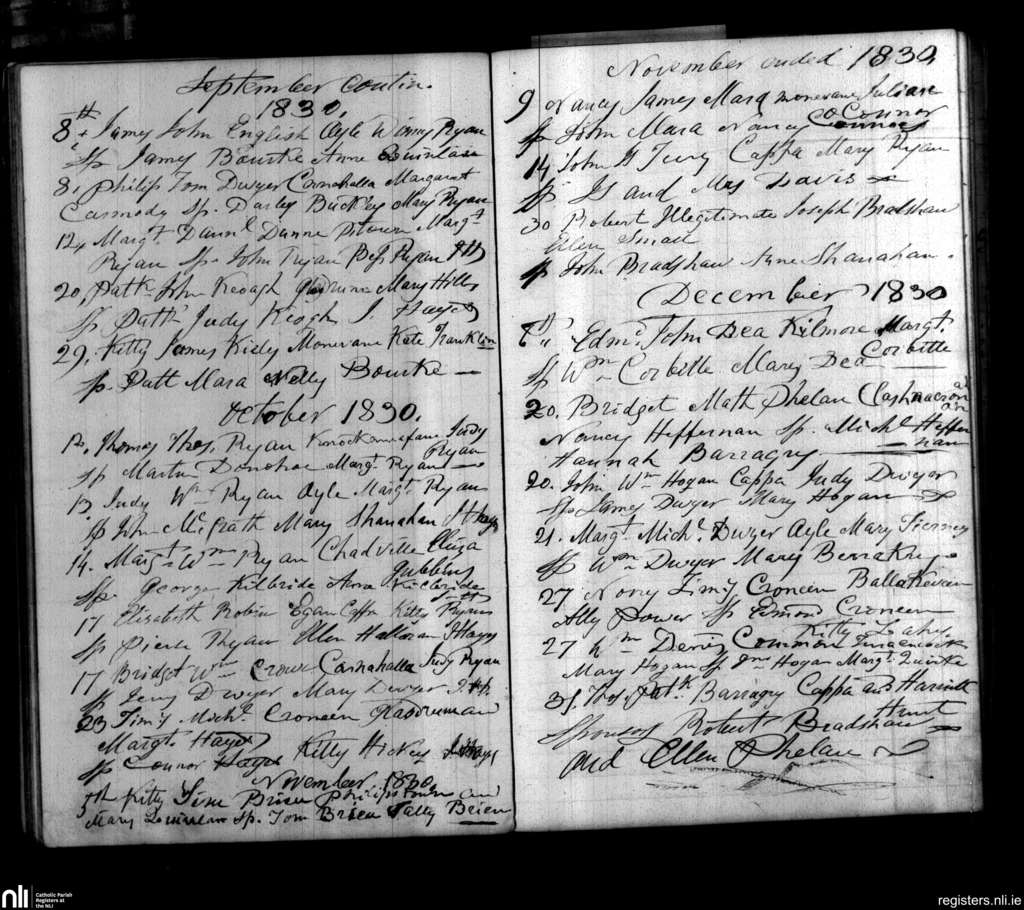 September contin.
1830.
8th James John English Ayle Winny Ryan
Sp James Bourke Anne Quinlan
8, Philip Tom Dwyer Carnahalla Margaret
Carmody Sp. Darby Buckley Mary Ryan
12, Margt. Dannl. Dunne Margt
Ryan Sp. John Ryan Bess Ryan JH
20, Patk John Keough Mary Hills
Sp Patk Judy Kiogh J Hayes
29, Kitty James Kiely Monevane Kate Franklin
Sp. Patt Mara Nelly Bourke
October 1830.
12, Thomas Thos. Ryan Judy
Ryan
Sp Martin Donohoe Margt. Ryan
13 Judy Wm Ryan Ayle Margt Ryan
Sp John McGrath Mary Shanahan J Hayes
14. Margt. Wm Ryan Chadville Eliza
Gubbins
Sp. George Kilbride Anna Kilbride
17 Elizabeth Robin Egan Cappa Kitty
Sp Pierce Ryan Ellen Halloran J Hays
17 Bridget Wm Crowe Carnahalla Judy Ryan
Sp Jerry Dwyer Mary Dwyer J.H
23 Timy Michl. Croneen
Margt. Hayes
Sp Connor Hayes Kitty Hickey J Hays
November 1830
5th Kitty Tim Brien Philipstown and
Mary Quinlan Sp. Tom Brien Patty Brien
November ended 1830
9 Nancy James Mara Monevane Julian
O Connor
Sp John Mara Nancy Connors
14 John Cappa Mary Ryan
Sp and Mrs Davis
30 Robert Illegitimate Joseph Bradshaw
Ellen
Sp John Bradshaw Anne Shanahan.
December 1830
6th Edmd. John Dea Kilmore Margt.
Corbitte
Sp Wm Corbitte Mary Dea
20. Bridget Math Phelan and
Nancy Heffernan Sp. Michl Heffer
nan
Hannah Barragry
20. John Wm Hogan Cappa Judy Dwyer
Sp James Dwyer Mary Hogan
21. Margt. Michl. Dwyer Ayle Mary Tierney
Sp Wm Dwyer Mary
27 Nory Timy Croneen
Ally Power Sp Edmond Croneen
Kitty Lahy
27 Wm Denis Common
Mary Hogan Sp Jms Hogan Margt.
31. Thos Patk Barragry Cappa and Harriett
Hunt
Sponsors Robert Bradshaw
and Ellen Phelan
nli
Catholic Parish
Registers at
the NLI
registers.nli.ie